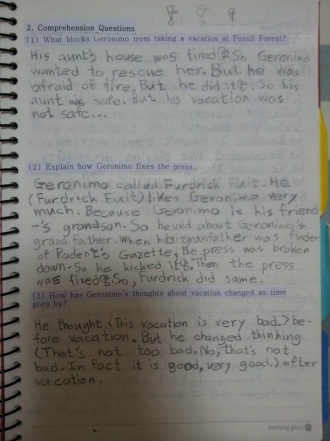 2. Comprehension Questions
(1) What blocks Geronimo from taking a vacation at Fossil Forest?
His aunt's house was fired. So Geronimo
wanted to rescue her. But he was
afraid of fire. But he did it. So his
aunt was safe. But his vacation was
not safe...
(2) Explain how Geronimo fixes the press.
Geronimo called Furdrick Fixit. He
(Furdrick Fixit) likes Geronimo very
much. Because Geronimo is his friend
-'s grandson. So he said about Geronimo's
grandfather. When his granfather was
of Rodent's Gazette, the press was broken
down. So he kicked it. Then the press
was fixed. So, Furdrick did same.
(3) How has Geronimo's thoughts about vacation changed as time
goes by?
He thought <This vacation is very bad.> be-
fore vacation. But he changed thinking
<That's not too bad. No, that's not
bad. In fact it is good, very good.> after
vacation.